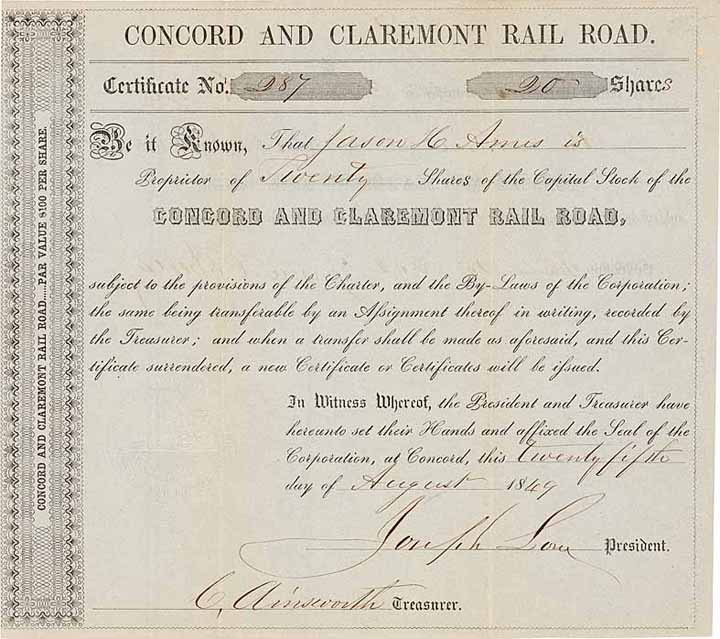 CONCORD AND CLAREMONT RAIL ROAD.
Certificate No. 287 20 Shares
Be it Known, That Jason H Ames is
Proprietor of Twenty Shares of the Capital Stock of the
CONCORD AND CLAREMONT RAIL ROAD,
subject to the provisions of the Charter, and the By-Laws of the Corporation;
the same being transferable by an Assignment thereof in writing, recorded by
the Treasurer; and when a transfer shall be made as aforesaid, and this Cer-
tificate surrendered, a new Certificate or Certificates will be issued.
In Witness Whereof, the President and Treasurer have
hereunto set their Hands and affixed the Seal of the
Corporation, at Concord, this twenty fifth
day of August 1849
Joseph Low President.
C. Ainsworth Treasurer.
CONCORD AND CLAREMONT RAIL ROAD...PAR VALUE $100 PER SHARE.